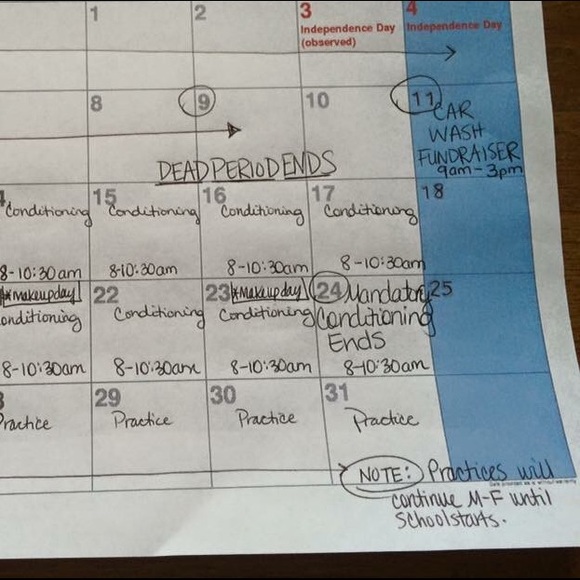 1 2 3 4
Independence Day Independence Day
(observed)
8 9 10 11
CAR
WASH
FUNDRAISER
9am-3pm
DEAD PERIOD ENDS
15 16 17 18
Conditioning Conditioning Conditioning Conditioning
8-10:30am 8-10:30am 8-10:30am 8-10:30am
*makeupday 22 23 *Makeupday 24 Mandatory 25
onditioning Conditioning Conditioning Conditioning
Ends
8-10:30am 8-10:30am 8-10:30am 8-10:30am
29 30 31
Practice Practice Practice Practice
NOTE: Practices will
continue M-F until
School starts.